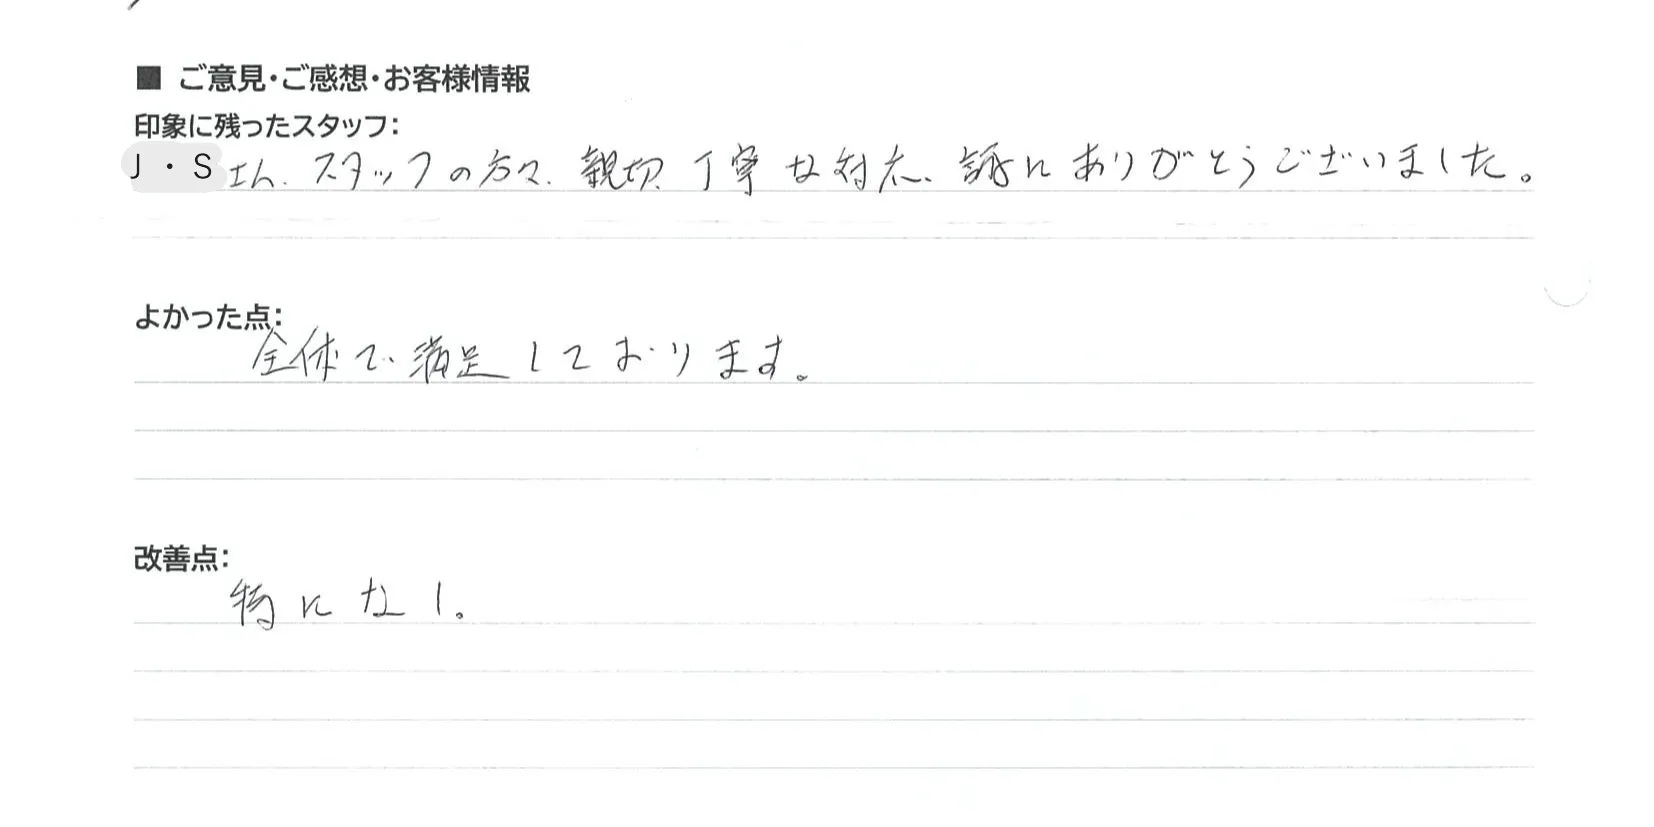 ■ ご意見・ご感想・お客様情報
印象に残ったスタッフ：
J・Sさん、スタッフの方々、親切、丁寧な対応、誠にありがとうございました。
よかった点：
全体で満足しております。
改善点：
特になし。